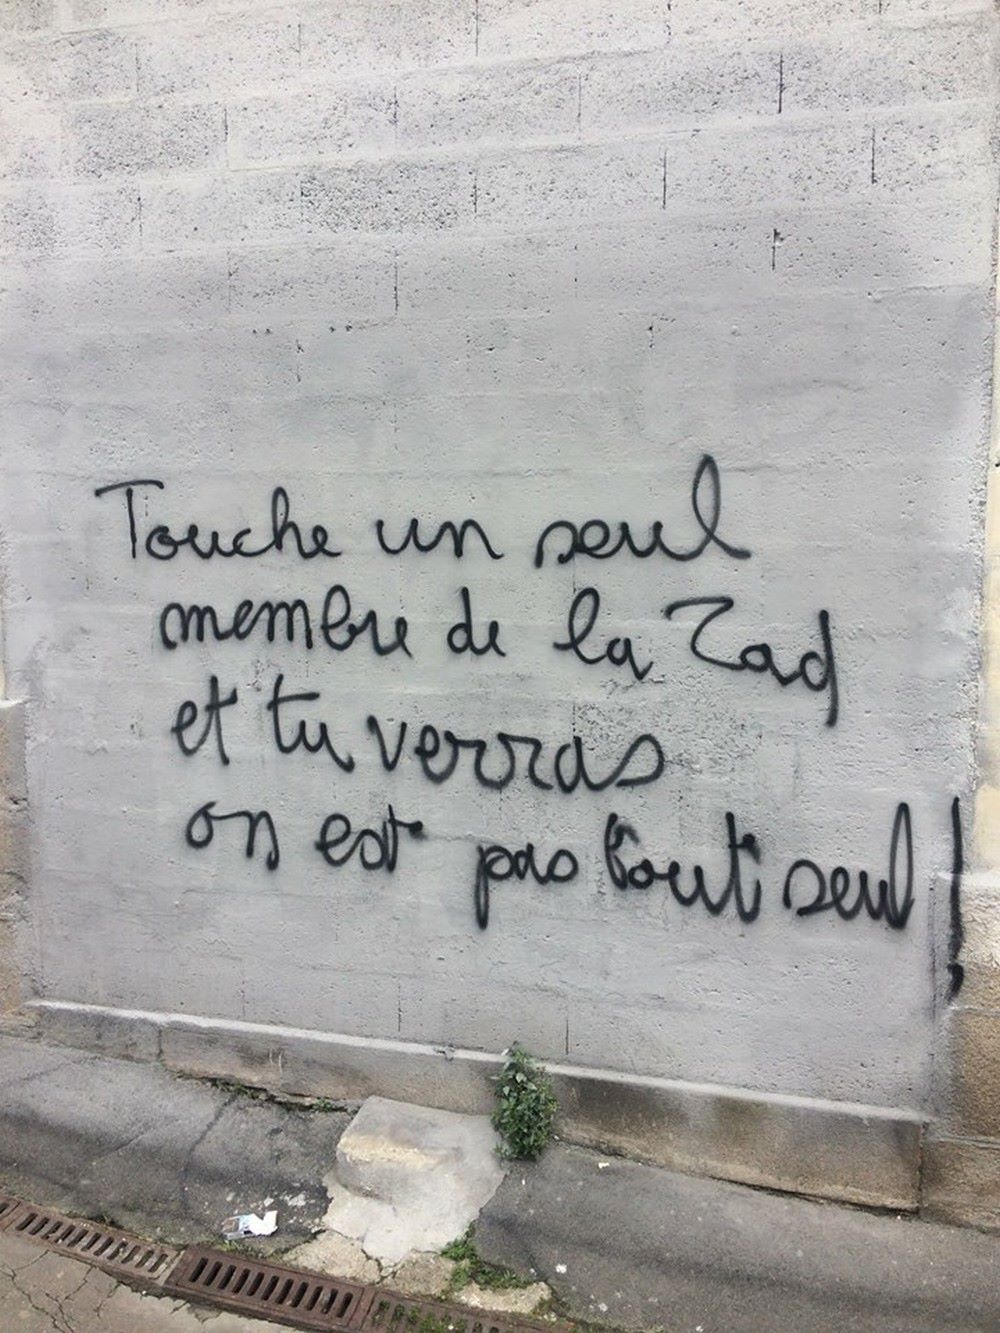 Touche un seul
membre de la Zad
et tu verras
on est pas tout seul !